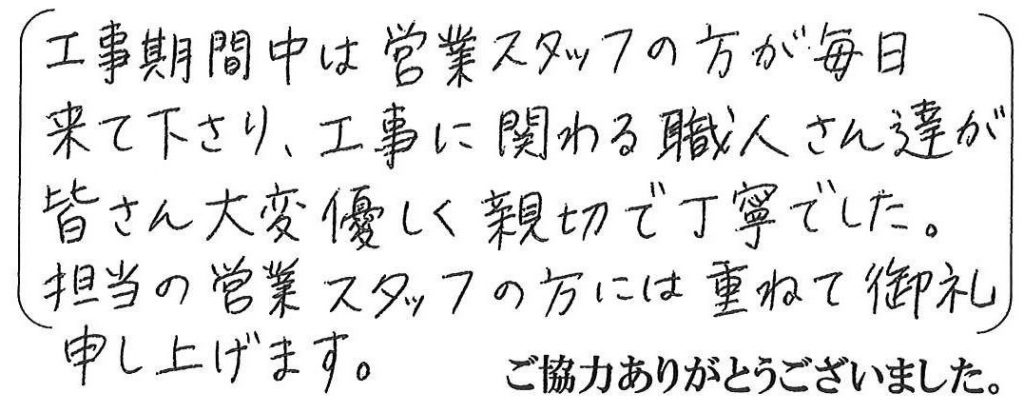 工事期間中は営業スタッフの方が毎日
来て下さり、工事に関わる職人さん達が
皆さん大変優しく親切で丁寧でした。
担当の営業スタッフの方には重ねて御礼
申し上げます。
ご協力ありがとうございました。